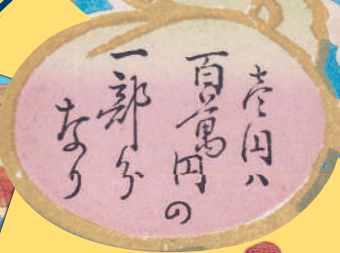 壱円ハ
百萬円の
一部分
なり